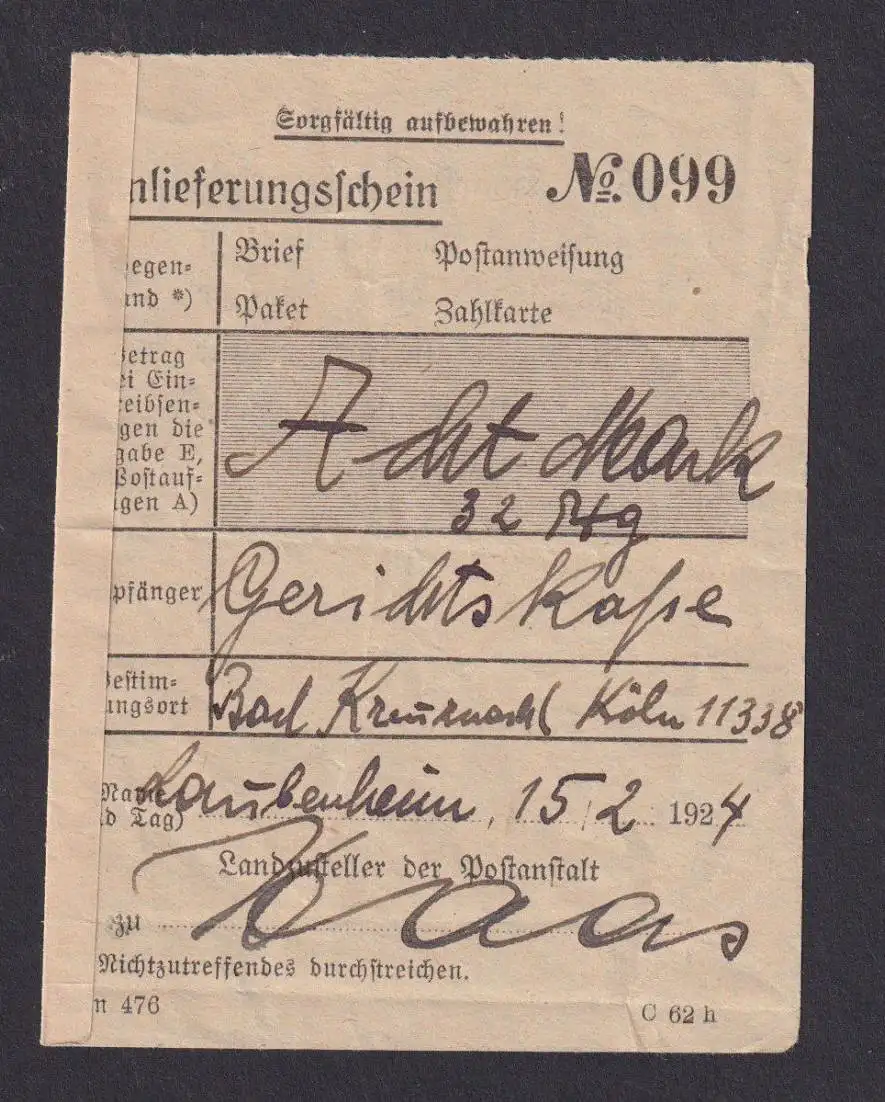 Sorgfältig aufbewahren!
nlieferungsschein № 099
egen- Brief Postanweisung
and *) Paket Zahlkarte
Betrag
ei Ein-
reibsen-
gen die
gabe E,
Postauf-
gen A)
Acht Mark
32 Pfg
pfänger Gerichtskasse
Bestim-
ungsort Bad Kreuznach Köln 11338
Name
d Tag) Laubenheim, 15/2 1924
Landzusteller der Postanstalt
zu
Nichtzutreffendes durchstreichen.
n 476 C 62 h